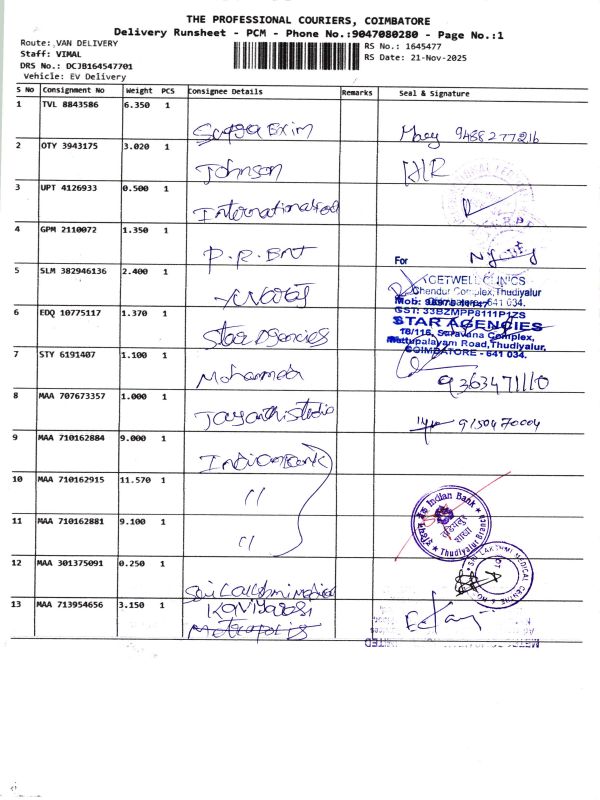 THE PROFESSIONAL COURIERS, COIMBATORE
Delivery Runsheet - PCM - Phone No.:9047080280 - Page No.:1
Route: VAN DELIVERY
RS No.: 1645477
Staff: VIMAL
RS Date: 21-Nov-2025
DRS No.: DCJB164547701
Vehicle: EV Delivery
S No Consignment No Weight PCS Consignee Details Remarks Seal & Signature
1 TVL 8843586 6.350 1
Surya Exim 9488277216
2 OTY 3943175 3.020 1
Johnson
3 UPT 4126933 0.500 1
International
4 GPM 2110072 1.350 1
P.R. Ent
For
5 SLM 382946136 2.400 1
CETWELL CLINICS
Chendur Complex, Thudiyalur
641 034.
6 EDQ 10775117 1.370 1
GST: 33BZMPP8111P1ZS
STAR AGENCIES
Star Agencies
18/116, Saravana Complex,
Mettupalayam Road, Thudiyalur,
COIMBATORE - 641 034.
7 STY 6191407 1.100 1
Mohammed
9363471110
8 MAA 707673357 1.000 1
Jayanthi Studio 9150470004
9 MAA 710162884 9.000 1
Indian Bank
10 MAA 710162915 11.570 1
"
Indian Bank
Thudiyalur Branch
11 MAA 710162881 9.100 1
"
12 MAA 301375091 0.250 1
SRI LAKSHMI MEDICAL CENTRE
Sri Lakshmi Medical
13 MAA 713954656 3.150 1
Kaviyarasi
Metropolis